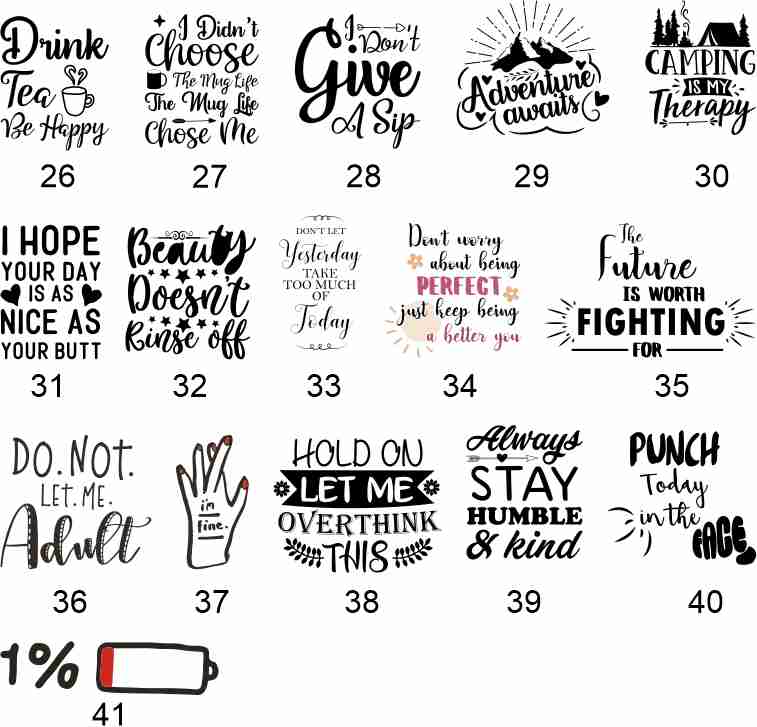 Drink
Tea
Be Happy
26
I Didn't
Choose
The Mug Life
The Mug Life
Chose Me
27
I Don't
Give
A Sip
28
Adventure
awaits
29
CAMPING
IS MY
Therapy
30
I HOPE
YOUR DAY
IS AS
NICE AS
YOUR BUTT
31
Beauty
Doesn't
Rinse off
32
DON'T LET
Yesterday
TAKE
TOO MUCH
OF
Today
33
Don't worry
about being
PERFECT
just keep being
a better you
34
The
Future
IS WORTH
FIGHTING
FOR
35
DO.NOT.
LET.ME.
Adult
36
i'm
fine.
37
HOLD ON
LET ME
OVERTHINK
THIS
38
Always
STAY
HUMBLE
& kind
39
PUNCH
Today
in the
FACE
40
1%
41